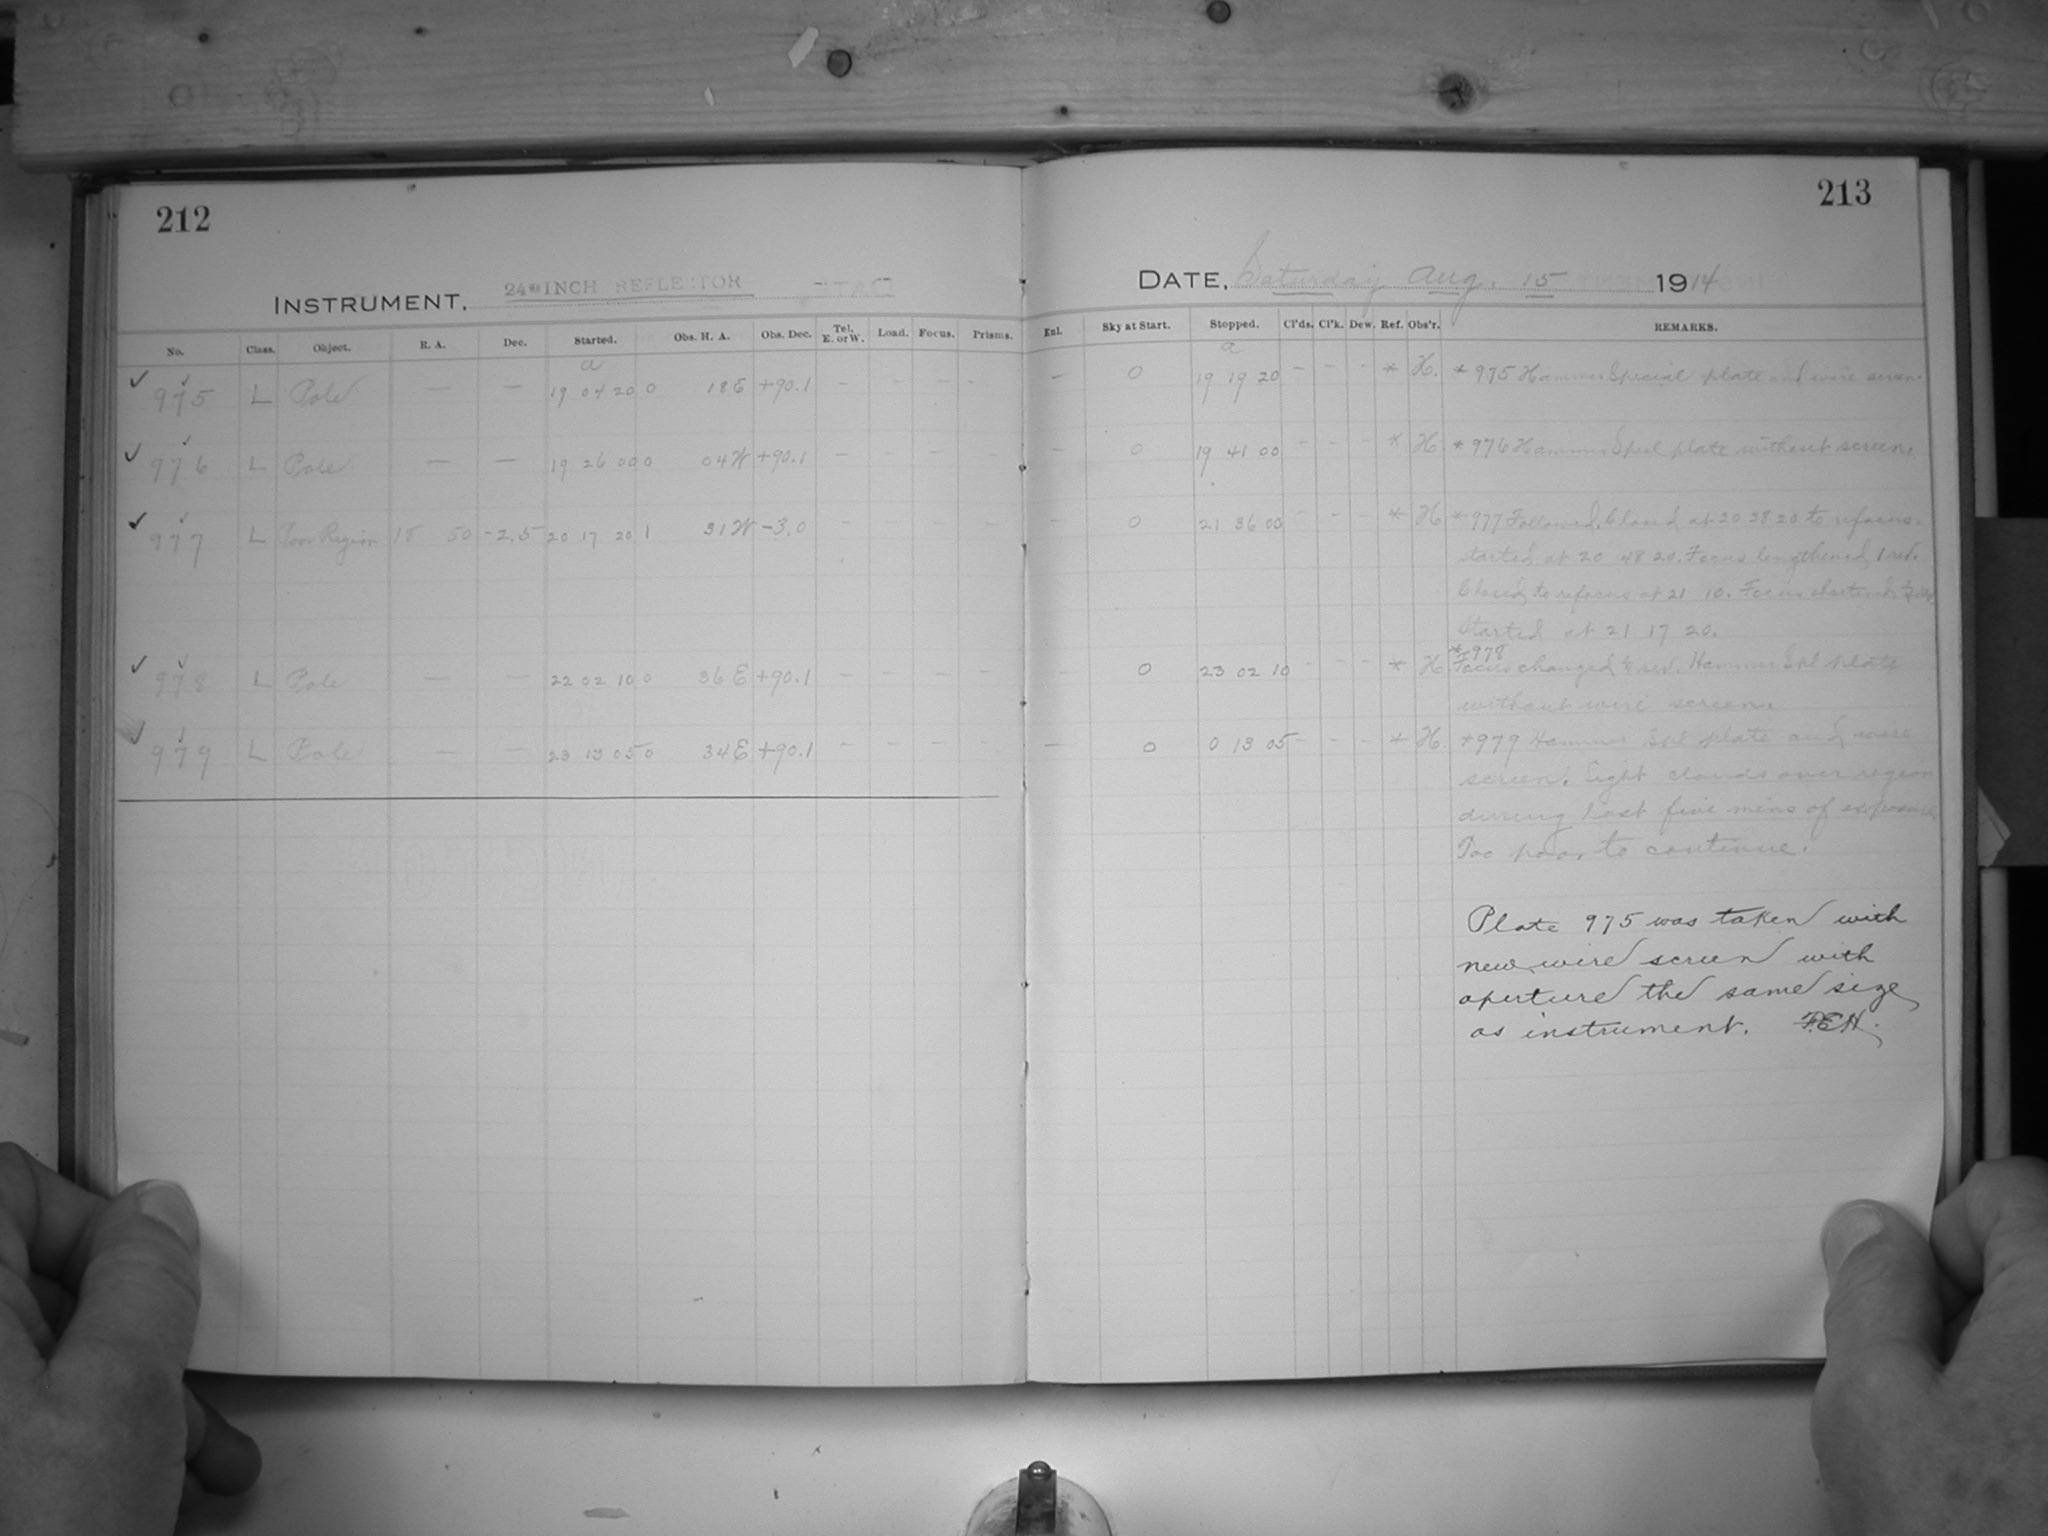 212
INSTRUMENT, 24-INCH REFLECTOR
No. Class. Object. R. A. Dec. Started. Obs. H. A. Obs. Dec. Tel. E. or W. Load. Focus. Prisms.
a
975 L Pole — — 19 04 20 0 18 E +90.1 - - - -
976 L Pole — — 19 26 00 0 04 W +90.1 - - - -
977 L Poor Region 18 50 -2.5 20 17 20 1 31 W -3.0 - - - -
978 L Pole — — 22 02 10 0 36 E +90.1 - - - -
979 L Pole — — 23 13 05 0 34 E +90.1 - - - -
213
DATE, Saturday Aug. 15 1914
Enl. Sky at Start. Stopped. Cl'ds. Cl'k. Dew. Ref. Obs'r. REMARKS.
a
- 0 19 19 20 - - - * H. * 975 Hammer Special plate and wire screen.
- 0 19 41 00 - - - * H. * 976 Hammer Spcl plate without screen.
- 0 21 36 00 - - - * H * 977 Followed. Closed at 20 38 20 to refocus.
started at 20 48 20. Focus lengthened 1 rev.
Closed to refocus at 21 10. Focus shortened
Started at 21 17 20.
* 978
- 0 23 02 10 - - - * H. Focus changed rev. Hammer Spl plate
without wire screen.
- 0 0 13 05 - - - * H. * 979 Hammer Spl plate and wire
screen. Light clouds over region
during last five mins of exposure.
Too poor to continue.
Plate 975 was taken with
new wire screen with
aperture the same size
as instrument. F.E.H.